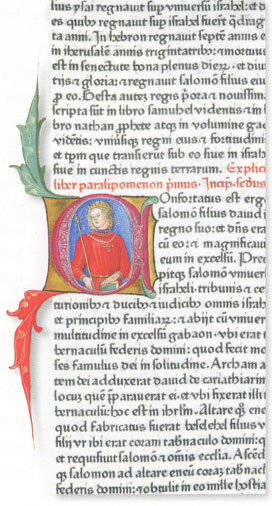 luus ysai regnauit sup vniuersū israhel: et d
es quib⁹ regnauit sup israhel fuerūt q̄drag
ta anni. In hebron regnauit septē annis e
in iherusalē annis trigintatrib⁹: ⁊ mortuus
est in senectute bona plenus dierꝝ. ⁊ diui
tiis ⁊ gloria: ⁊ regnauit salomō filius eiu
p eo. Gesta autez regis p̄ora ⁊ nouissim
scripta sūt in libro samuhel videntis ⁊ in l
bro nathan ꝓphete atqꝫ in volumine ga
videtis: vniūsiqꝫ regni eius ⁊ fortitudini
et tpm que transierūt sub eo siue in israh
siue in cunctis regnis terrarum. Explici
liber paralipomenon p̄imus. Incip̄. scd̄us
Onfortatus est erg
salomō filius dauid i
regno suo: et dn̄s era
cū eo: ⁊ magnificaui
eum in excelsū. Prec
pitqꝫ salomō vniuer
israheli tribunis ⁊ ce
turionib⁹ ⁊ ducib⁹ ⁊ iudicib⁹ omnis israh
et principib⁹ familiaꝝ: ⁊ abijt cū vniuer
multitudine in excelsū gabaon vbi erat
bernaculū federis domini: quod fecit mo
ses famulus dei in solitudine. Archam a
tem dei adduxerat dauid de cariathiarin
locuꝫ quē p̄parauerat ei ⁊ vbi fixerat illi
bernaculū: hoc est in ihrlm̄. Altare q̄ ene
quod fabricatus fuerat beselehel filius v
filij vr ibi erat coraꝫ tab̄naculo domini: q
et requisiuit salomō ⁊ om̄is ecclīa. Ascēd
qꝫ salomon ad altare eneū coraꝫ tab̄nacl
federis domini: ⁊ obtulit in eo mille hostia